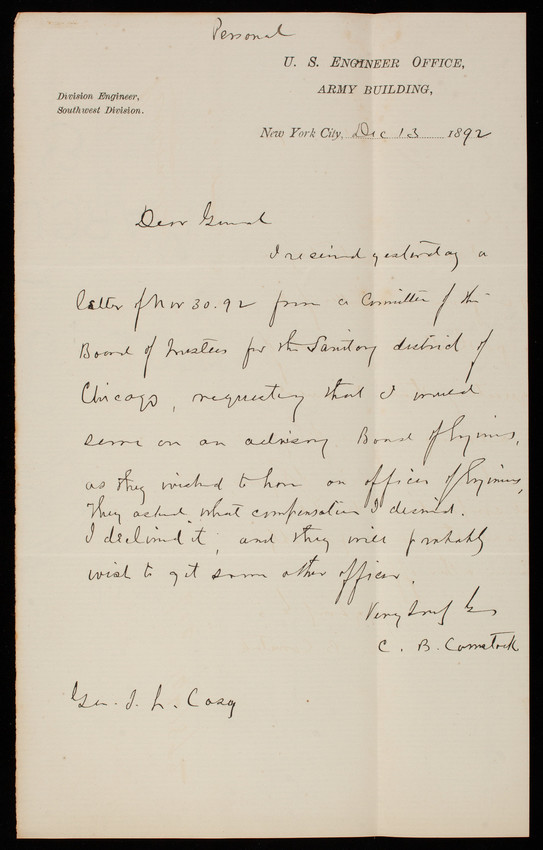 Personal
U. S. ENGINEER OFFICE,
ARMY BUILDING,
Division Engineer,
Southwest Division.
New York City, Dec 13 1892
Dear General
I received yesterday a
letter of Nov 30. 92 from a Committee of the
Board of trustees for the Sanitary district of
Chicago, requesting that I would
serve on an advisory Board of Engineers,
as they wished to have an officer of Engineers,
They asked what compensation I desired.
I declined it, and they will probably
wish to get some other officer.
Very truly yrs
C. B. Comstock
Gen. T. L. Casey